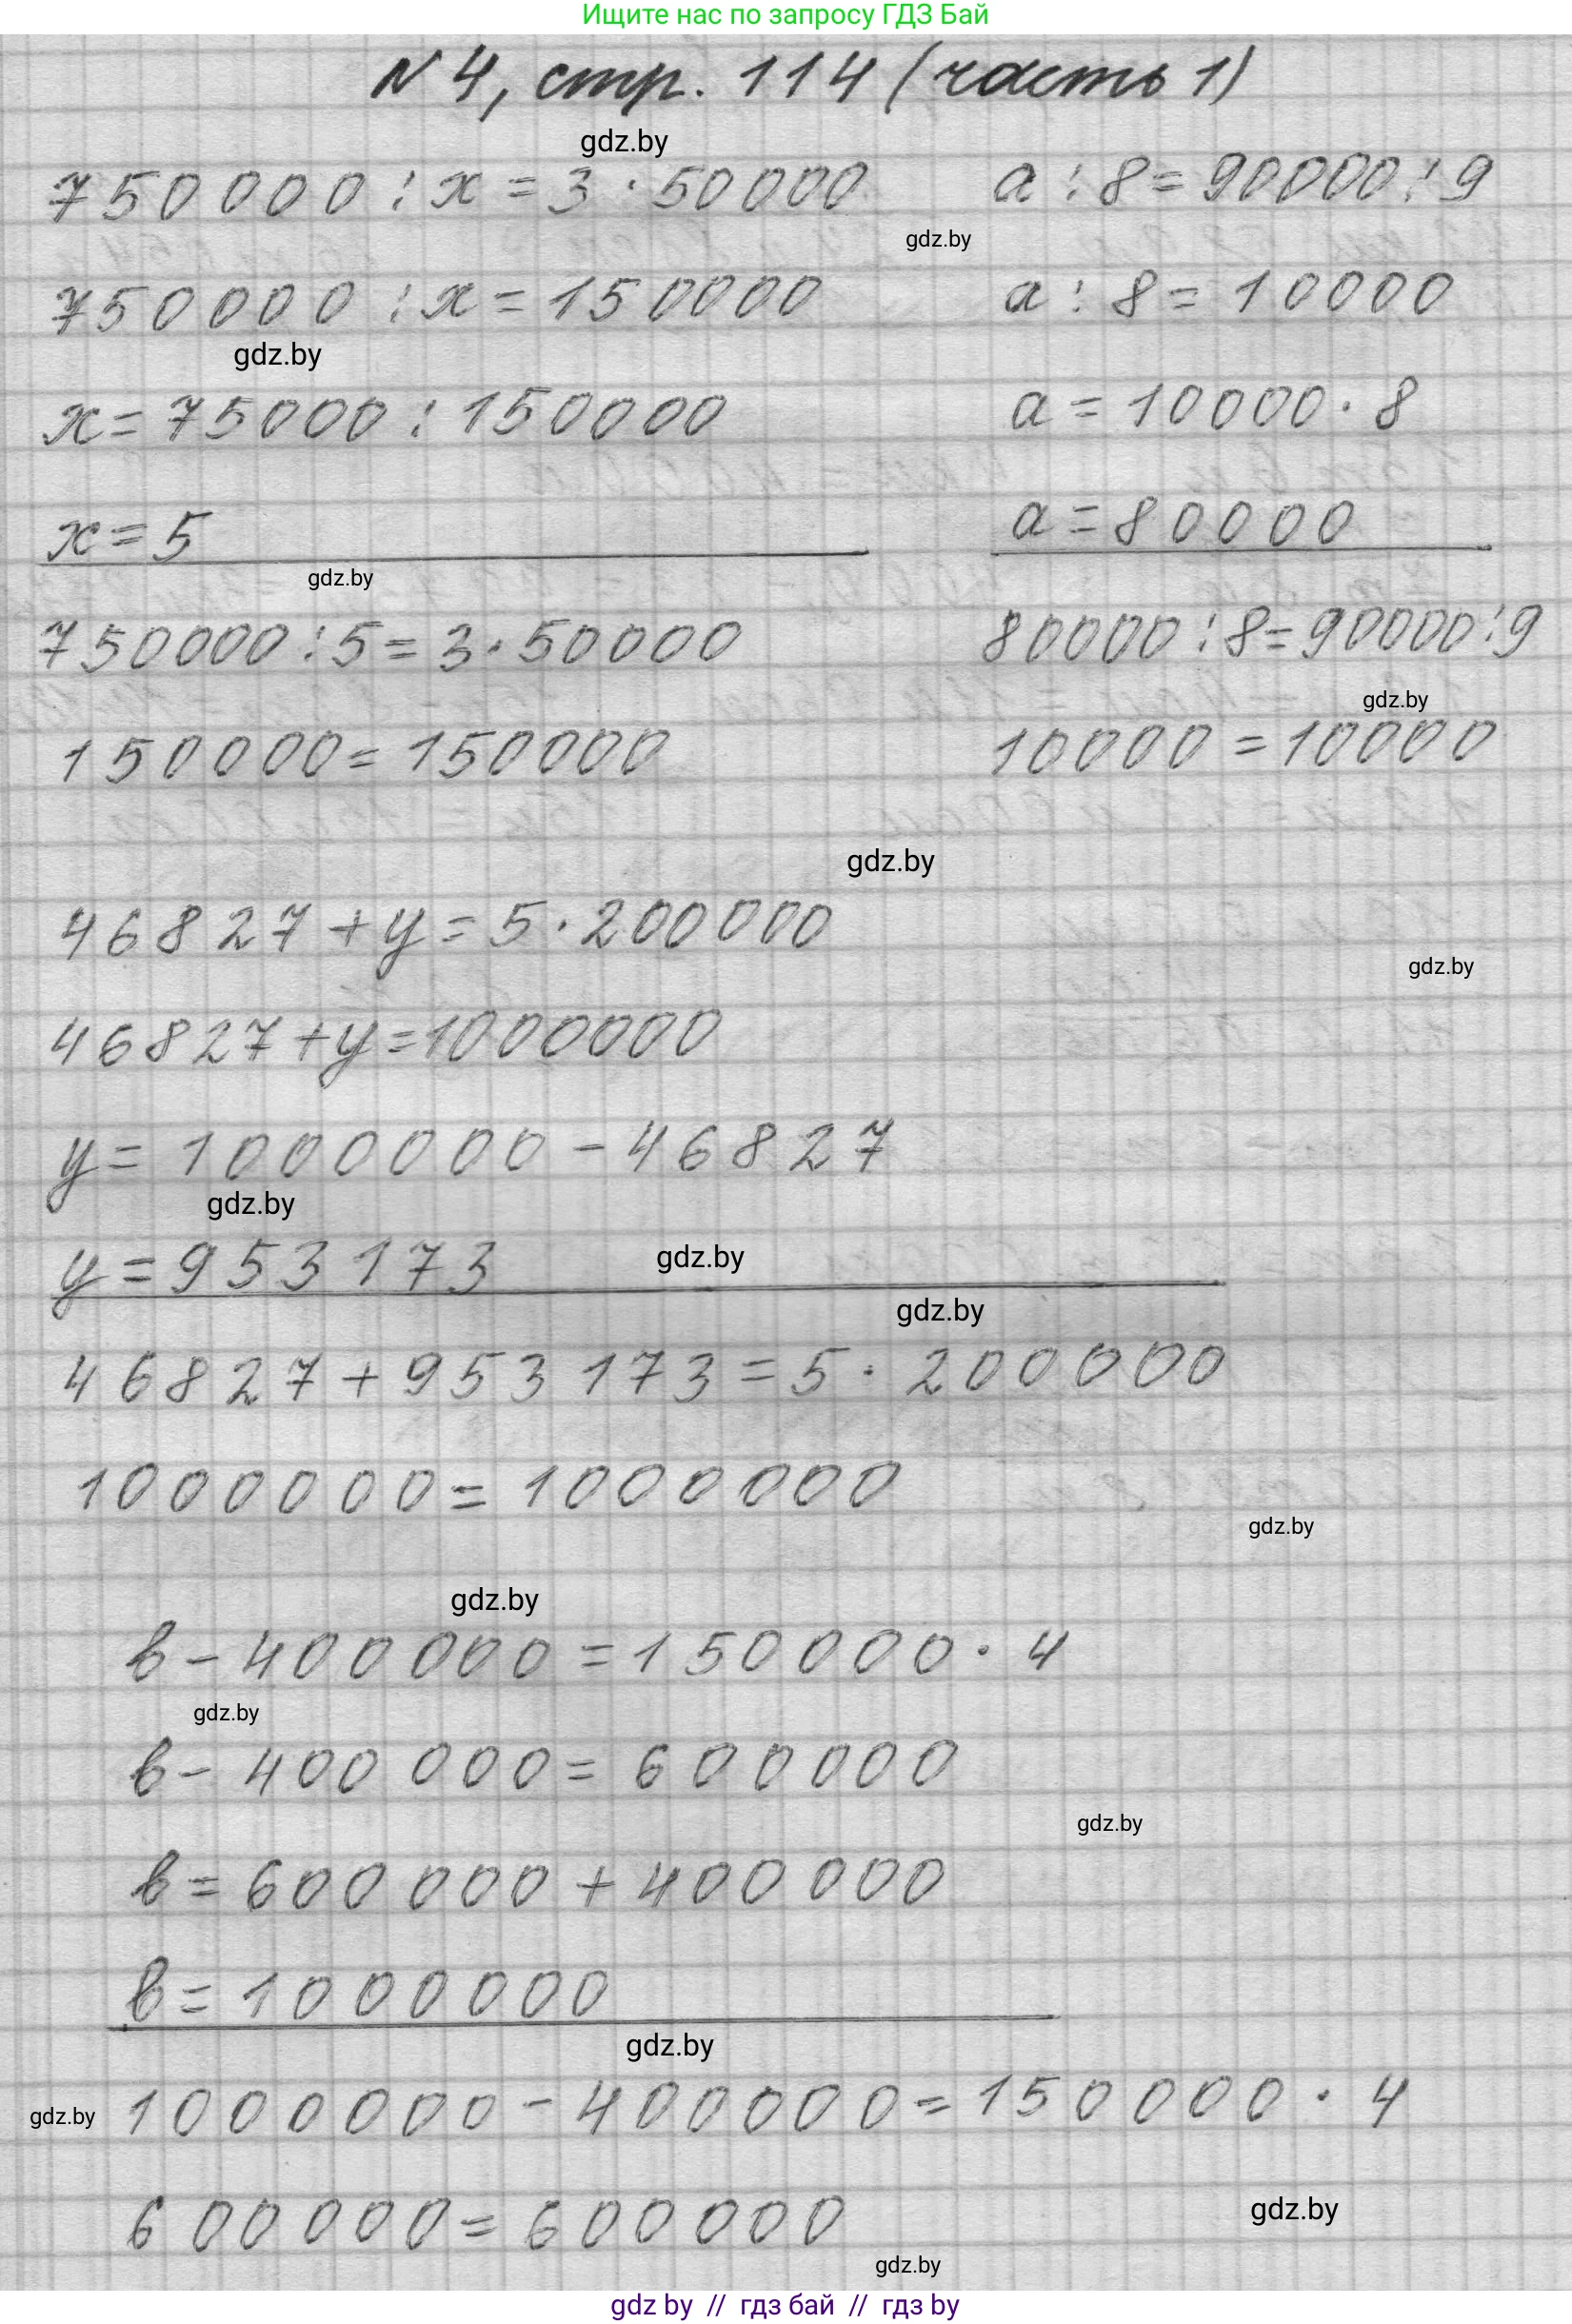 Ищите нас по запросу ГДЗ Бай
N 4, стр. 114 (часть 1)
gdz.by
750000 : x = 3 · 50000
a : 8 = 90000 : 9
gdz.by
750000 : x = 150000
a : 8 = 10000
gdz.by
x = 75000 : 150000
a = 10000 · 8
x = 5
a = 80000
gdz.by
750000 : 5 = 3 · 50000
80000 : 8 = 90000 : 9
gdz.by
150000 = 150000
10000 = 10000
gdz.by
46827 + y = 5 · 200000
gdz.by
46827 + y = 1000000
y = 1000000 - 46827
gdz.by
y = 953173
gdz.by
gdz.by
46827 + 953173 = 5 · 200000
1000000 = 1000000
gdz.by
gdz.by
в - 400000 = 150000 · 4
gdz.by
в - 400000 = 600000
gdz.by
в = 600000 + 400000
в = 1000000
gdz.by
gdz.by
1000000 - 400000 = 150000 · 4
600000 = 600000
gdz.by
gdz.by
gdz by // гдз бай // гдз by